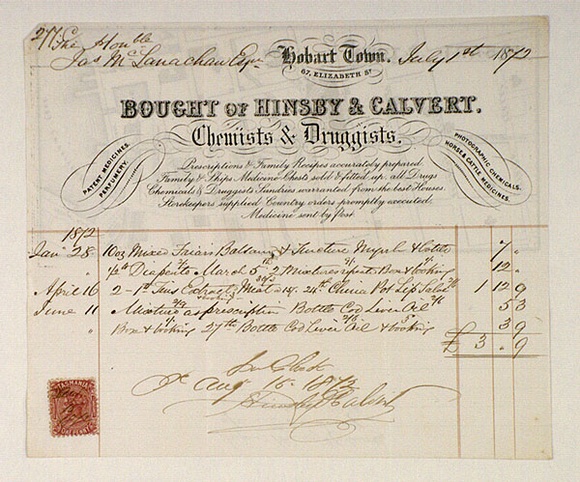 The Honble
Jas McLanachan Esqr
Hobart Town. July 1st 1872
67, ELIZABETH ST
BOUGHT OF HINSBY & CALVERT.
Chemists & Druggists.
PATENT MEDICINES.
PERFUMERY.
PHOTOGRAPHIC CHEMICALS.
HORSE & CATTLE MEDICINES.
Prescriptions & Family Recipes accurately prepared.
Family & Ships Medicine Chests sold & fitted up. all Drugs
Chemicals & Druggists Sundries warranted from the best Houses.
Storekeepers supplied Country orders promptly executed.
Medicine sent by post.
1872
Jan 28 10oz Mixed Friars Balsam & Tincture Myrrh & bottle 7 "
" March 5th 2 Mixtures repeat Box & booking 12 "
April 16 2 - Extract Meat 24th China Pot Lip Salve 1 12 9
June 11 Mixture as prescription Bottle Cod Liver Oil 5 3
" Box & booking 27th Bottle Cod Liver Oil & booking 3 9
£ 3 " 9
Aug 15. 1872
Hinsby & Calvert
TASMANIA